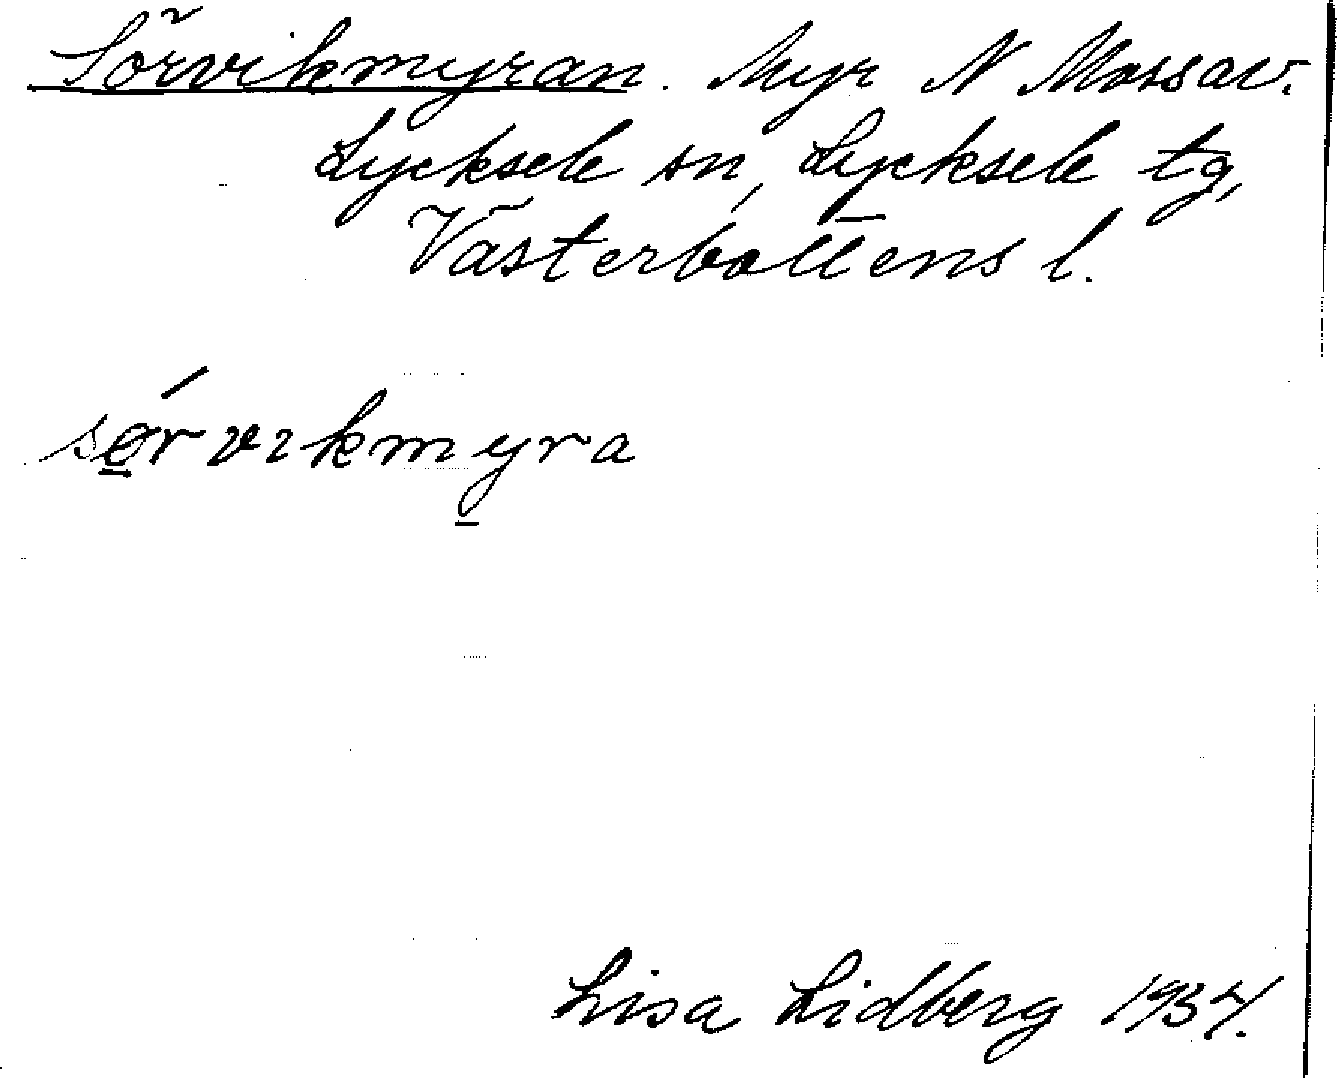 Sörvikmyran. Myr N Mossav.
Lycksele sn, Lycksele tg,
Västerbottens l.
sørvikmyra
Lisa Lidberg 1934.